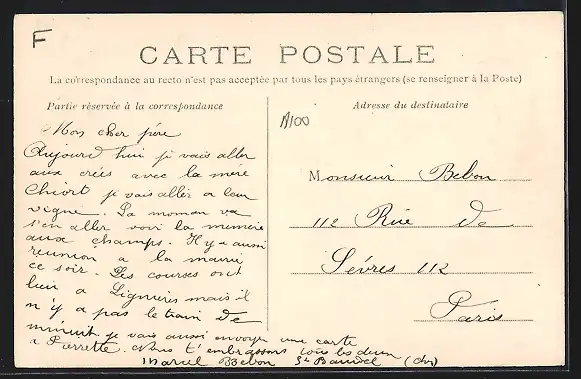 F
CARTE POSTALE
La correspondance au recto n'est pas acceptée par tous les pays étrangers (se renseigner à la Poste)
Partie réservée à la correspondance
Adresse du destinataire
A100
Mon cher père
Aujourd hui je vais aller
aux crées avec la mère
Chiort je vais aller a leur
vigne. La moman va
s'en aller voir la mémère
aux champs. Il y a aussi
reunion a la mairie
ce soir. Les courses ont
lieu a Lignières mais il
n'y a pas le train de
minuit je vais aussi envoyer une carte
a Pierrette. Nous t'embrassons tous les deux
Marcel Bebon St Baudel (cher)
Monsieur Bebon
112 Rue de
Sévres 112
Paris